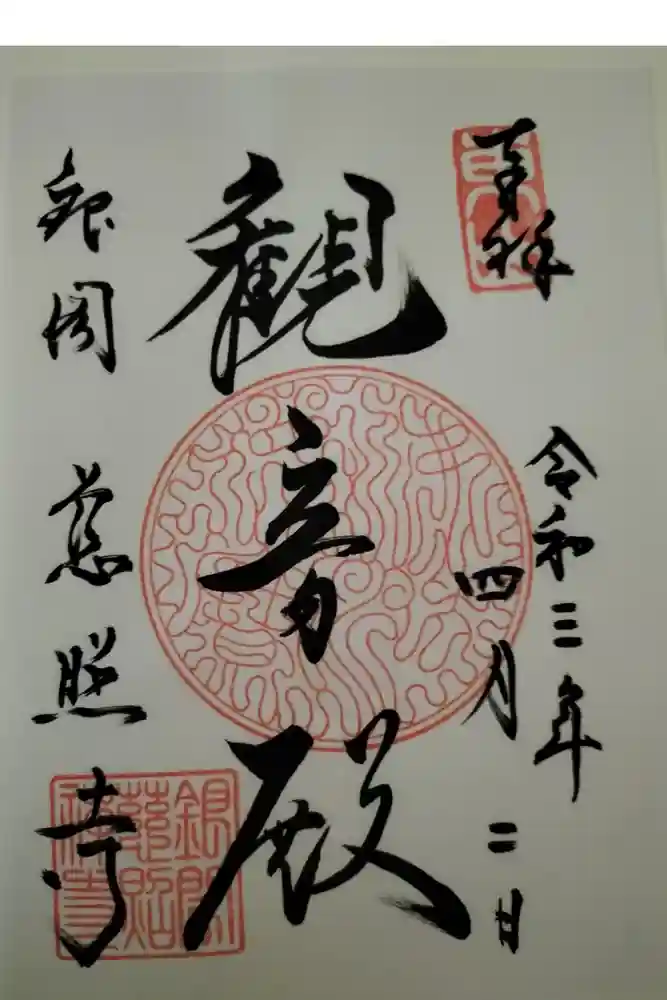 奉拝
令和三年
四月二日
観音殿
銀閣 慈照寺
銀閣慈照禅寺